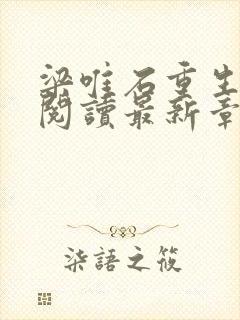 梁唯石重生
閱讀最新章
柒語之筱